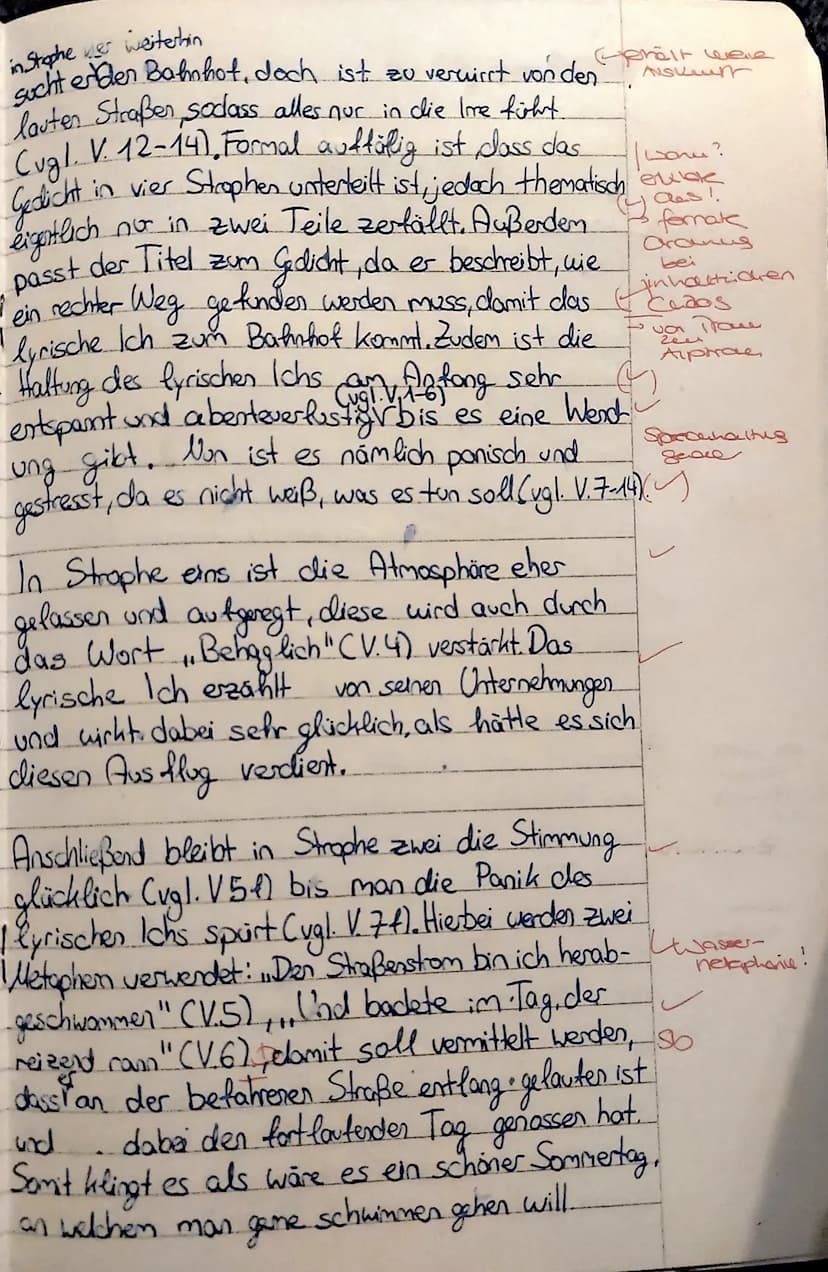 in Strophe vier weiterhin
sucht er den Bahnhof, doch ist zu verwirrt von den
lauten Straßen, sodass alles nur in die Irre führt
(vgl. V. 12-14). Formal auffällig ist, dass das
Gedicht in vier Strophen unterteilt ist, jedoch thematisch
eigentlich nur in zwei Teile zerfällt. Außerdem
passt der Titel zum Gedicht, da er beschreibt, wie
ein rechter Weg gefunden werden muss, damit das
lyrische Ich zum Bahnhof kommt. Zudem ist die
Haltung des lyrischen Ichs am Anfang sehr
(vgl. V. 1-6)
entspannt und abenteuerlustig bis es eine Wend-
ung gibt. Nun ist es nämlich panisch und
gestresst, da es nicht weiß, was es tun soll (vgl. V. 7-14).
In Strophe eins ist die Atmosphäre eher
gelassen und aufgeregt, diese wird auch durch
das Wort „Behaglich" (V. 4) verstärkt. Das
lyrische Ich erzählt von seinen Unternehmungen
und wirkt dabei sehr glücklich, als hätte es sich
diesen Ausflug verdient.
Anschließend bleibt in Strophe zwei die Stimmung
glücklich (vgl. V 5f) bis man die Panik des
lyrischen Ichs spürt (vgl. V. 7f). Hierbei werden zwei
Metaphern verwendet: „Den Straßenstrom bin ich herab-
geschwommen" (V. 5), „Und badete im Tag, der
reizend rann" (V. 6), damit soll vermittelt werden,
dass er an der befahrenen Straße entlang gelaufen ist
und dabei den fortlaufenden Tag genossen hat.
Somit klingt es als wäre es ein schöner Sommertag,
an welchem man gerne schwimmen gehen will
erhält keine
Auskunft
wann?
das!
formale
Ordnung
bei
inhaltlichen
Chaos
von
zum
Alptraum
Sprechhaltung
genau
Wasser-
metaphorik!
So